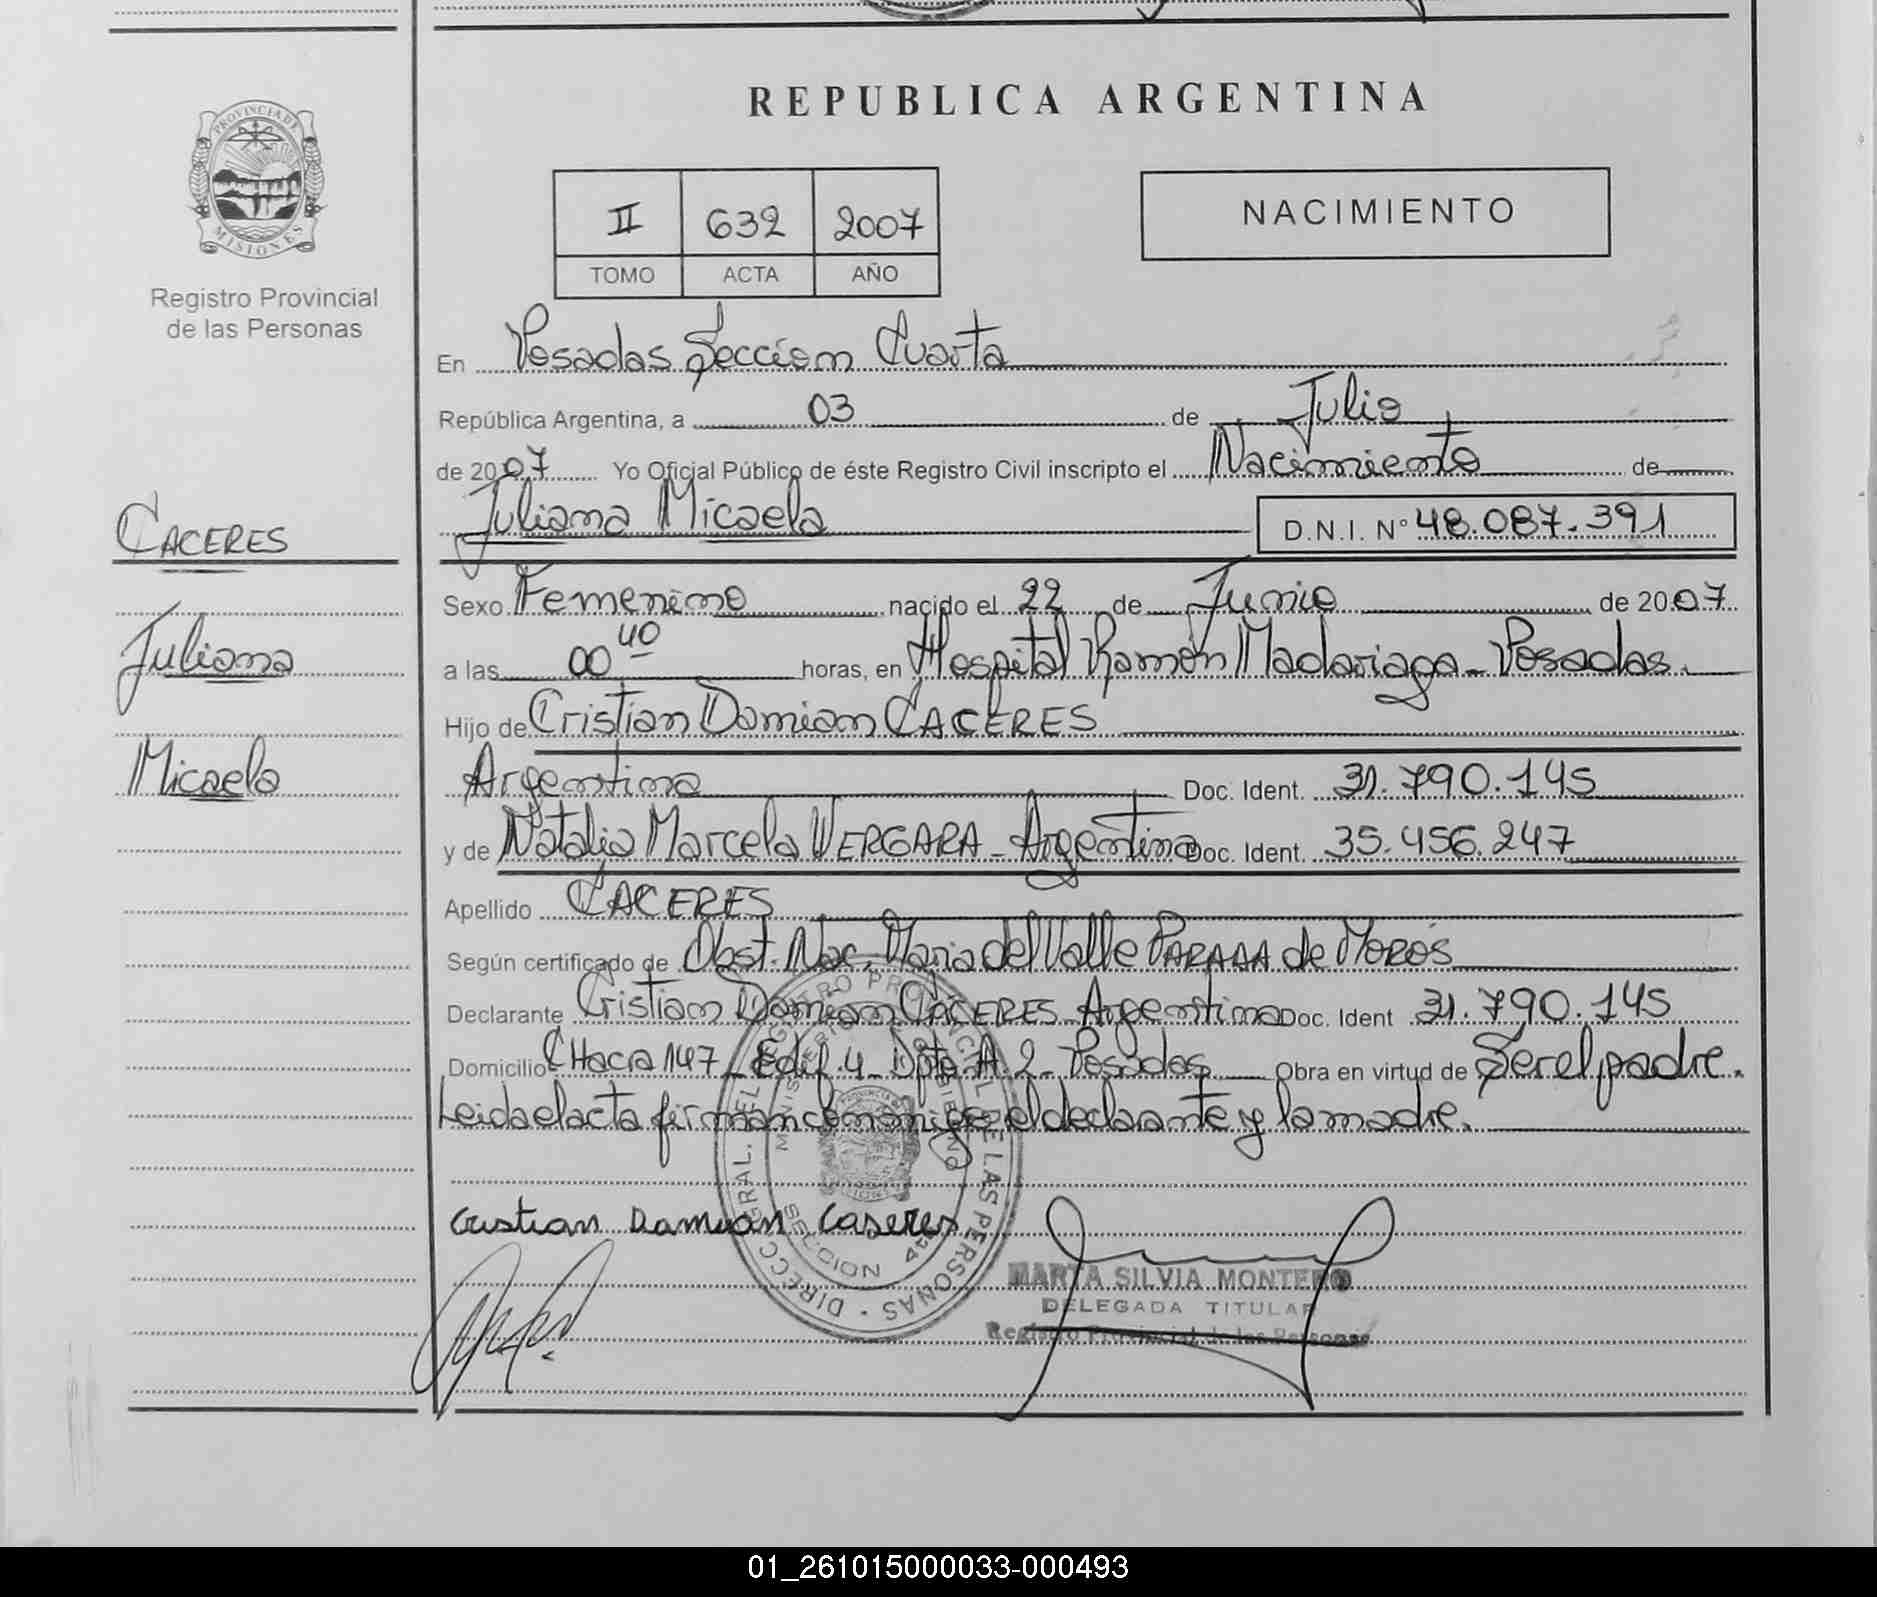 REPUBLICA ARGENTINA
PROVINCIA DE
MISIONES
Registro Provincial
de las Personas
II 632 2007
TOMO ACTA AÑO
NACIMIENTO
En Posadas Sección Cuarta
República Argentina, a 03 de Julio
de 2007 Yo Oficial Público de éste Registro Civil inscripto el Nacimiento de
Juliana Micaela D.N.I. N° 48.087.391
CACERES
Juliana
Micaela
Sexo Femenino nacido el 22 de Junio de 2007
a las 00 40 horas, en Hospital Ramón Madariaga - Posadas.
Hijo de Cristian Damian CACERES
Argentina Doc. Ident. 31.790.145
y de Natalia Marcela VERGARA - Argentina Doc. Ident. 35.456.247
Apellido CACERES
Según certificado de Obst. Nac. Maria del Valle PARADA de MOROS
Declarante Cristian Damian CACERES Argentina Doc. Ident 31.790.145
Domicilio CHacra 147 - Edif. 4 - Dpto A. 2 - Posadas Obra en virtud de Ser el padre.
Leida el acta firman conmigo el declarante y la madre.
Cristian Damian Caseres
DIRECC. GRAL. DEL REGISTRO PROVINCIAL DE LAS PERSONAS
MARTA SILVIA MONTERO
DELEGADA TITULAR
Registro Provincial de las Personas
01_261015000033-000493